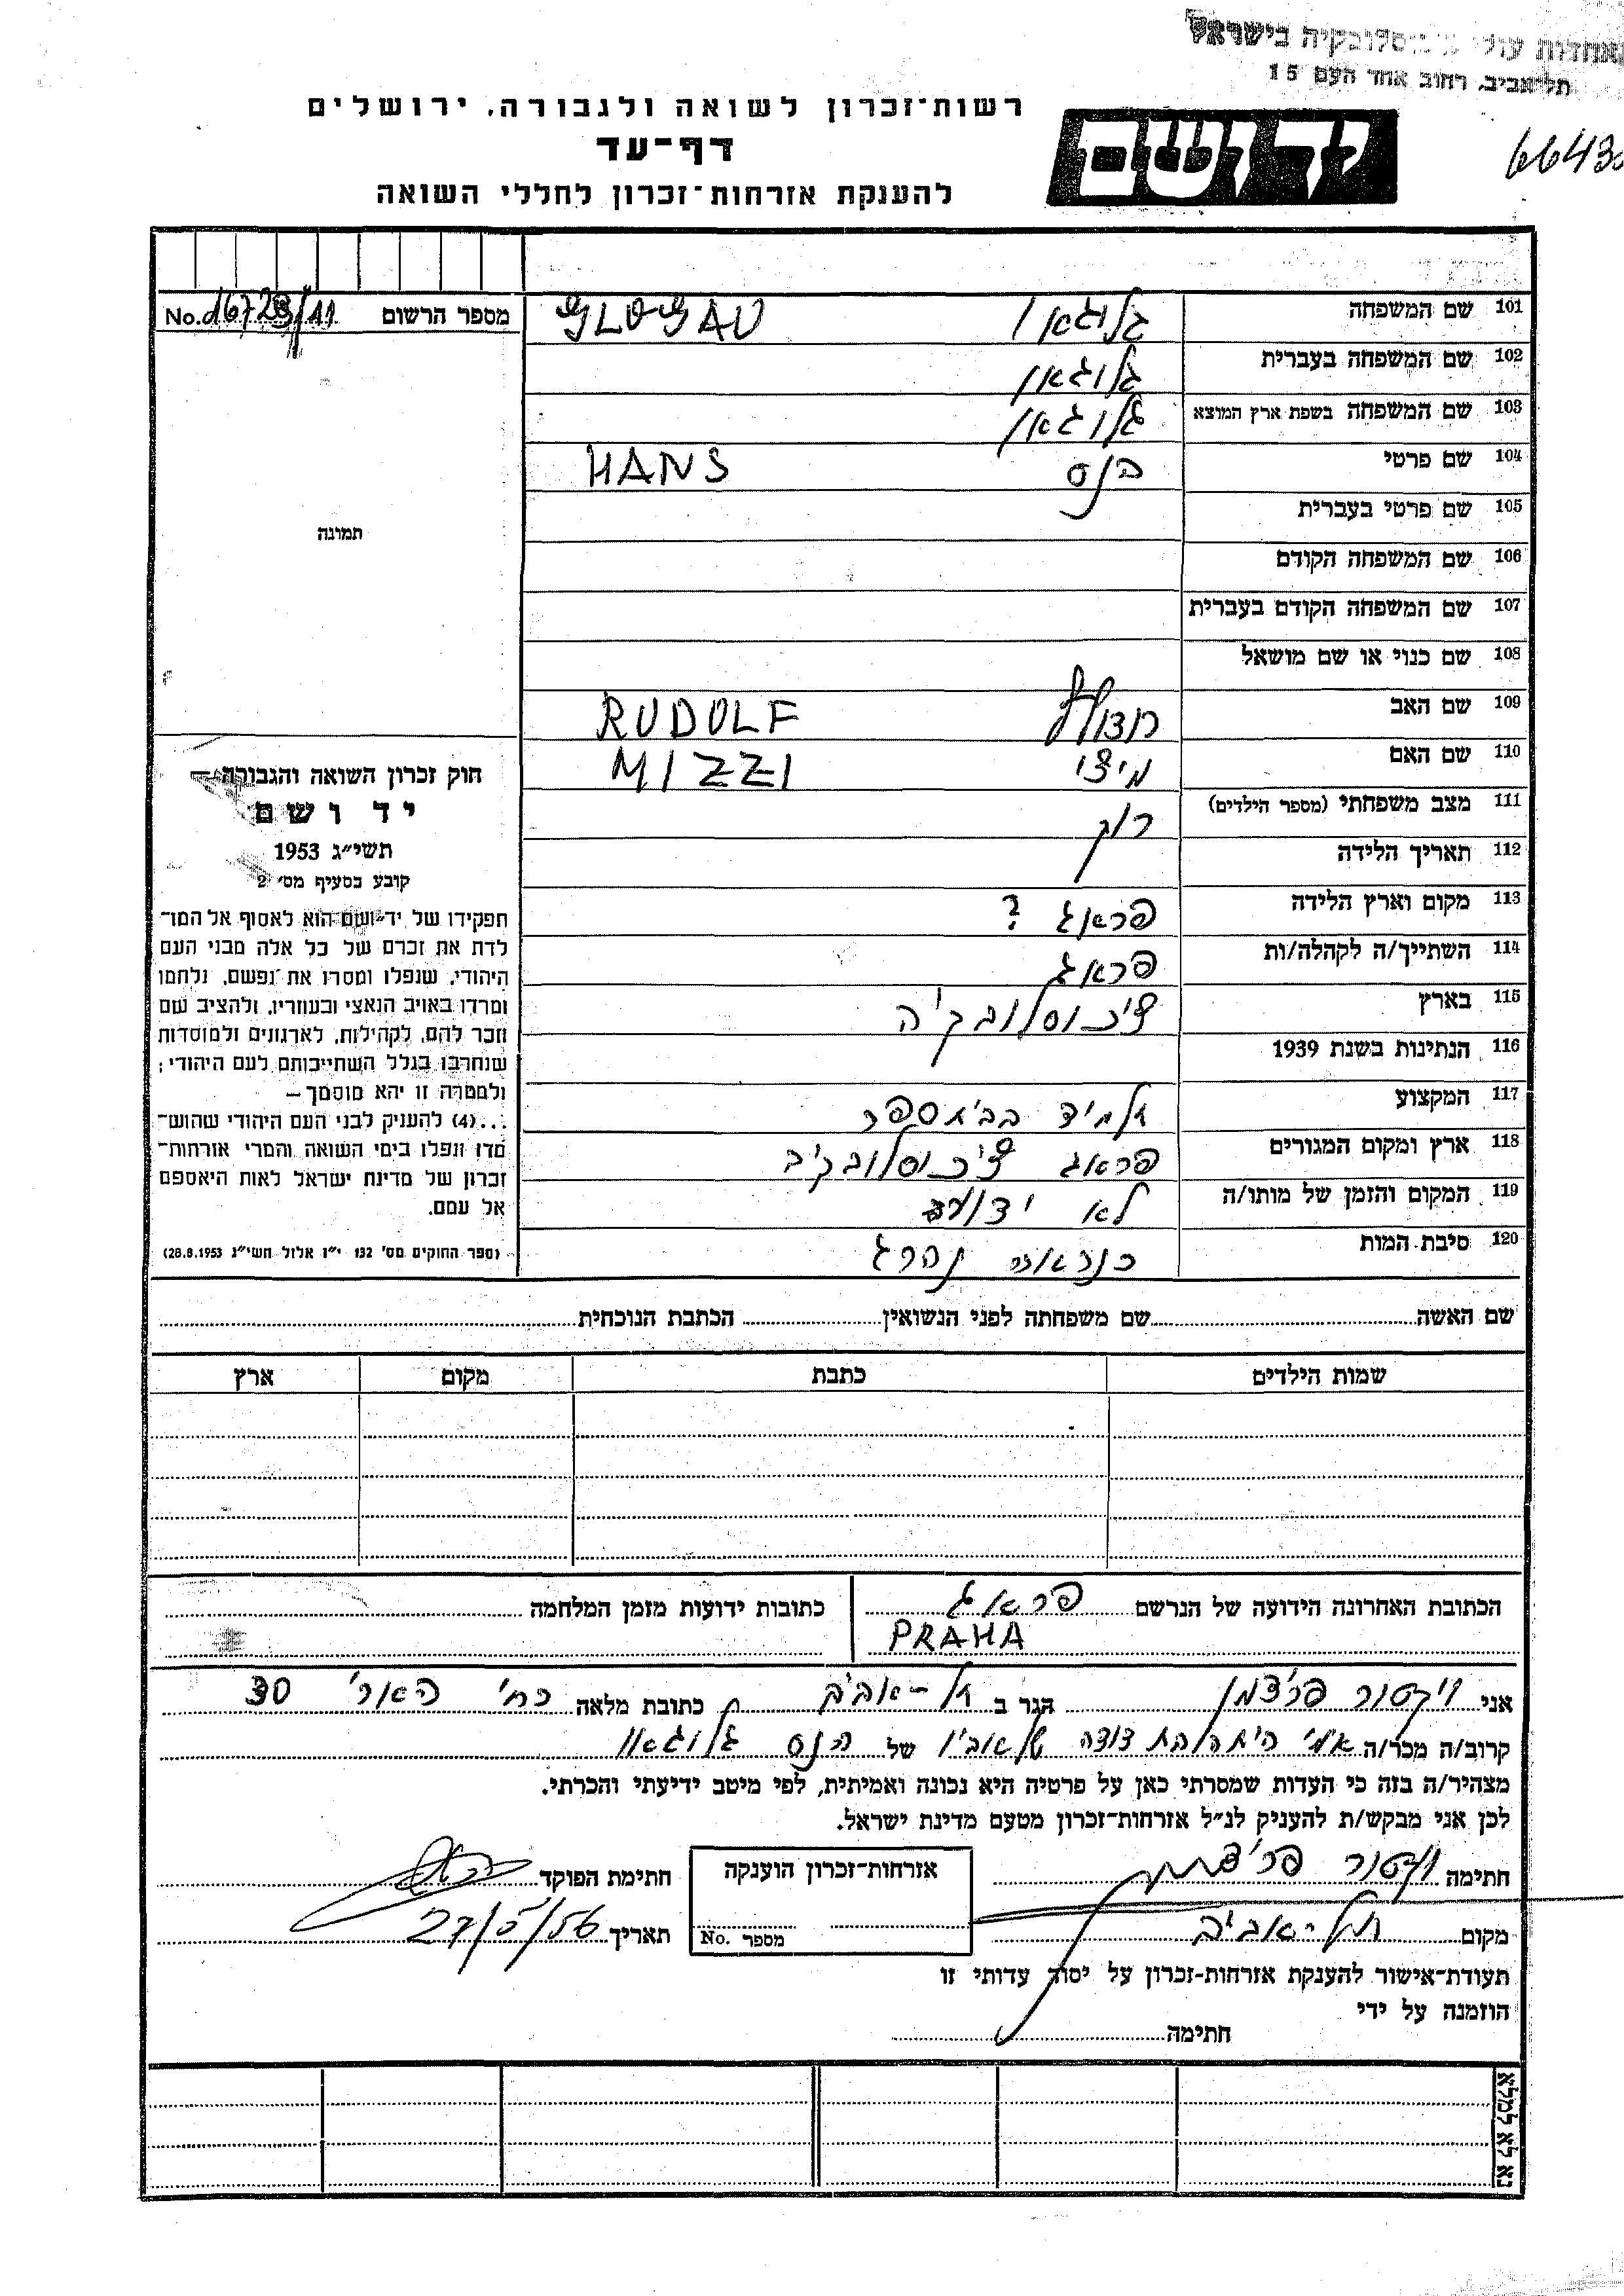 בישראל
תל־אביב, רחוב אחד העם 15
רשות־זכרון לשואה ולגבורה, ירושלים
דף־עד
להענקת אזרחות־זכרון לחללי השואה
יד ושם
6643
101 שם המשפחה גלוגאו GLOGAU
מספר הרשום No. 16723/11
102 שם המשפחה בעברית גלוגאו
103 שם המשפחה בשפת ארץ המוצא גלוגאו
104 שם פרטי הנס HANS
105 שם פרטי בעברית
תמונה
106 שם המשפחה הקודם
107 שם המשפחה הקודם בעברית
108 שם כנוי או שם מושאל
109 שם האב רודולף RUDOLF
110 שם האם מיצי MIZZI
111 מצב משפחתי (מספר הילדים) רוק
112 תאריך הלידה
113 מקום וארץ הלידה פראג ?
114 השתייך/ה לקהלה/ות פראג
115 בארץ צ'כוסלובקיה
116 הנתינות בשנת 1939
117 המקצוע תלמיד בבית ספר
118 ארץ ומקום המגורים פראג צ'כוסלובקיה
119 המקום והזמן של מותו/ה לא ידוע
120 סיבת המות כנראה נהרג
חוק זכרון השואה והגבורה —
יד ושם
תשי״ג 1953
קובע בסעיף מס׳ 2
תפקידו של יד־ושם הוא לאסוף אל המו־
לדת את זכרם של כל אלה מבני העם
היהודי, שנפלו ומסרו את נפשם, נלחמו
ומרדו באויב הנאצי ובעוזריו, ולהציב שם
וזכר להם, לקהילות, לארגונים ולמוסדות
שנחרבו בגלל השתייכותם לעם היהודי;
ולמטרה זו יהא מוסמך —
...(4) להעניק לבני העם היהודי שהוש־
מדו ונפלו בימי השואה והמרי אזרחות־
זכרון של מדינת ישראל לאות היאספם
אל עמם.
(ספר החוקים מס׳ 132 י״ז אלול תשי״ג 28.8.1953)
שם האשה שם משפחתה לפני הנשואין הכתבת הנוכחית
שמות הילדים כתבת מקום ארץ
הכתובת האחרונה הידועה של הנרשם פראג כתובות ידועות מזמן המלחמה
PRAHA
אני ויקטור פרצמן הגר ב תל-אביב כתובת מלאה רח' הארי 30
קרוב/ה מכר/ה אמי היתה בת דודה של אביו של הנס גלוגאו
מצהיר/ה בזה כי העדות שמסרתי כאן על פרטיה היא נכונה ואמיתית, לפי מיטב ידיעתי והכרתי.
לכן אני מבקש/ת להעניק לנ״ל אזרחות־זכרון מטעם מדינת ישראל.
חתימה ויקטור פרצמן אזרחות־זכרון הוענקה חתימת הפוקד
מקום תל-אביב מספר No. תאריך 27/5/56
תעודת־אישור להענקת אזרחות־זכרון על יסוד עדותי זו
הוזמנה על ידי
חתימה
נא לא למלא